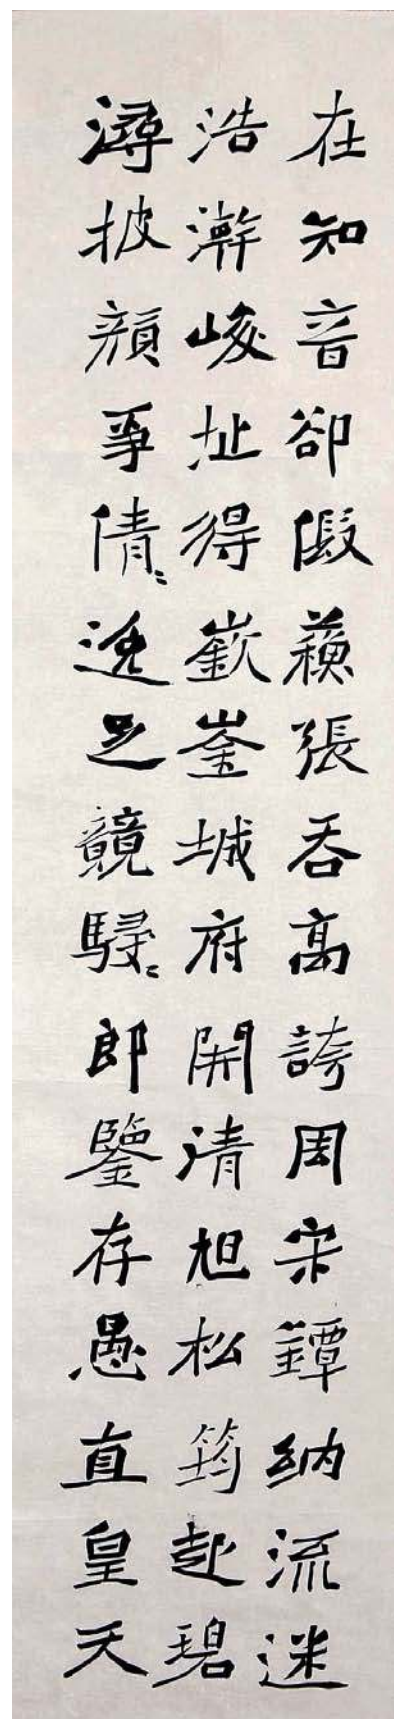 在知音卻假蘓張舌高誇周宋鐔納流迷
浩澣峻址得嶔崟城府開清旭松筠起碧
潯披顔爭倩〻逸足競駸〻郎鑒存愚直皇天